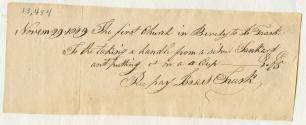 13,454
Novem 29 1849 The first Church in Beverly to I. Trask
To the taking a handle from a silver Tankard
and putting it on a Cup
Rec pay Israel Trask